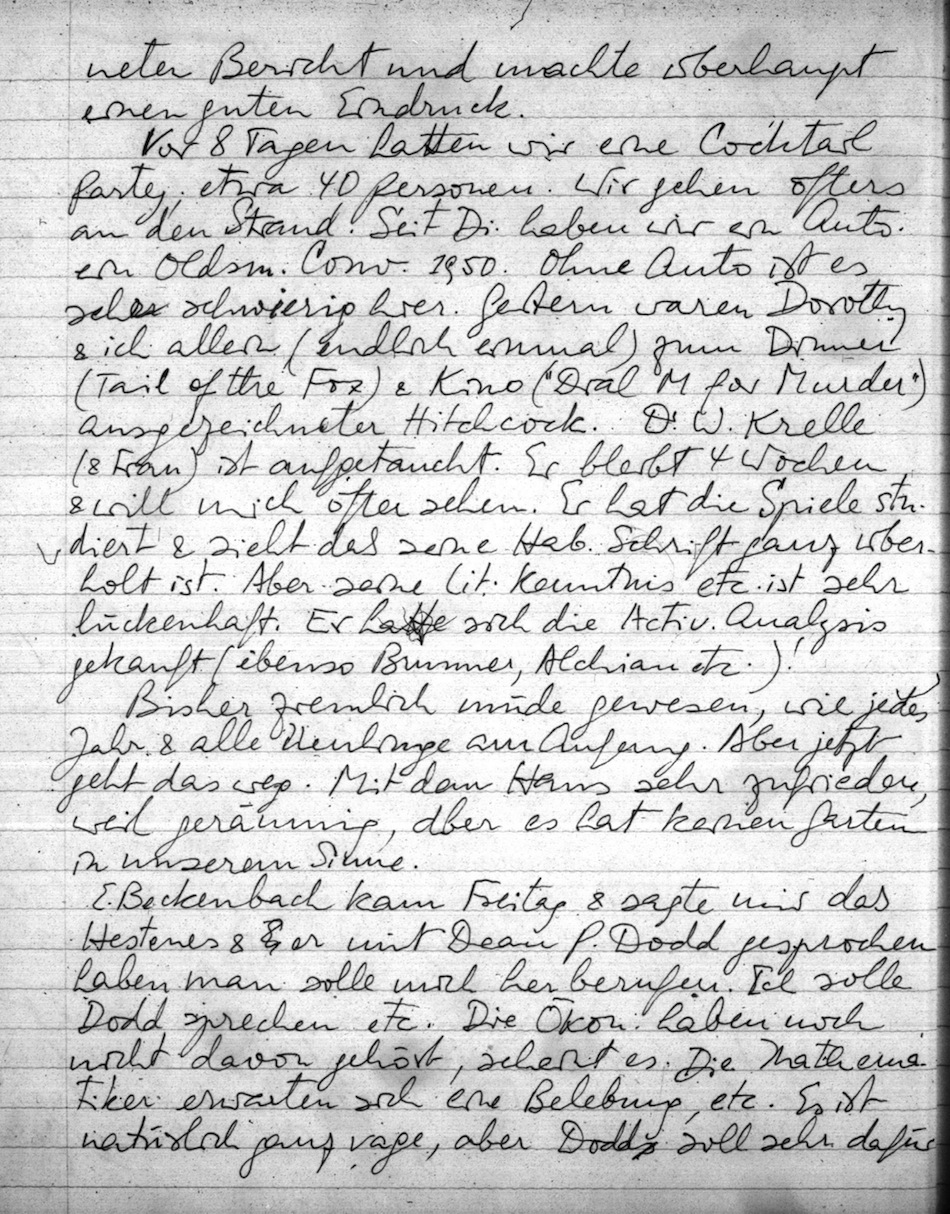 neten Bericht und machte überhaupt
einen guten Eindruck.
Vor 8 Tagen hatten wir eine Cocktail
Party, etwa 40 Personen. Wir gehen öfters
an den Strand. Seit Di. haben wir ein Auto.
ein Oldsm. Conv. 1950. Ohne Auto ist es
sehr schwierig hier. Gestern waren Dorothy
& ich allein (endlich einmal) zum Dinner
(Tail of the Fox) & Kino ("Dial M for Murder")
ausgezeichneter Hitchcock. Dr. W. Krelle
(& Frau) ist aufgetaucht. Er bleibt 4 Wochen
& will mich öfter sehen. Er hat die Spiele stu-
diert & sieht das seine Hab. Schrift ganz über-
holt ist. Aber seine Lit. Kenntnis etc. ist sehr
lückenhaft. Er hatte sich die Activ. Analysis
gekauft (ebenso Brunner, Alchian etc.)!
Bisher ziemlich müde gewesen, wie jedes
Jahr & alle Neulinge am Anfang. Aber jetzt
geht das weg. Mit dem Haus sehr zufrieden,
weil geräumig, aber es hat keinen Garten
in unserem Sinne.
E. Beckenbach kam Freitag & sagte mir das
Hestenes & er mit Dean P. Dodd gesprochen
haben man solle mich her berufen. Ich solle
Dodd sprechen etc. Die Ökon. haben noch
nicht davon gehört, scheint es. Die Mathema-
tiker erwarten sich eine Belebung, etc. Es ist
natürlich ganz vage, aber Dodd soll sehr dafür